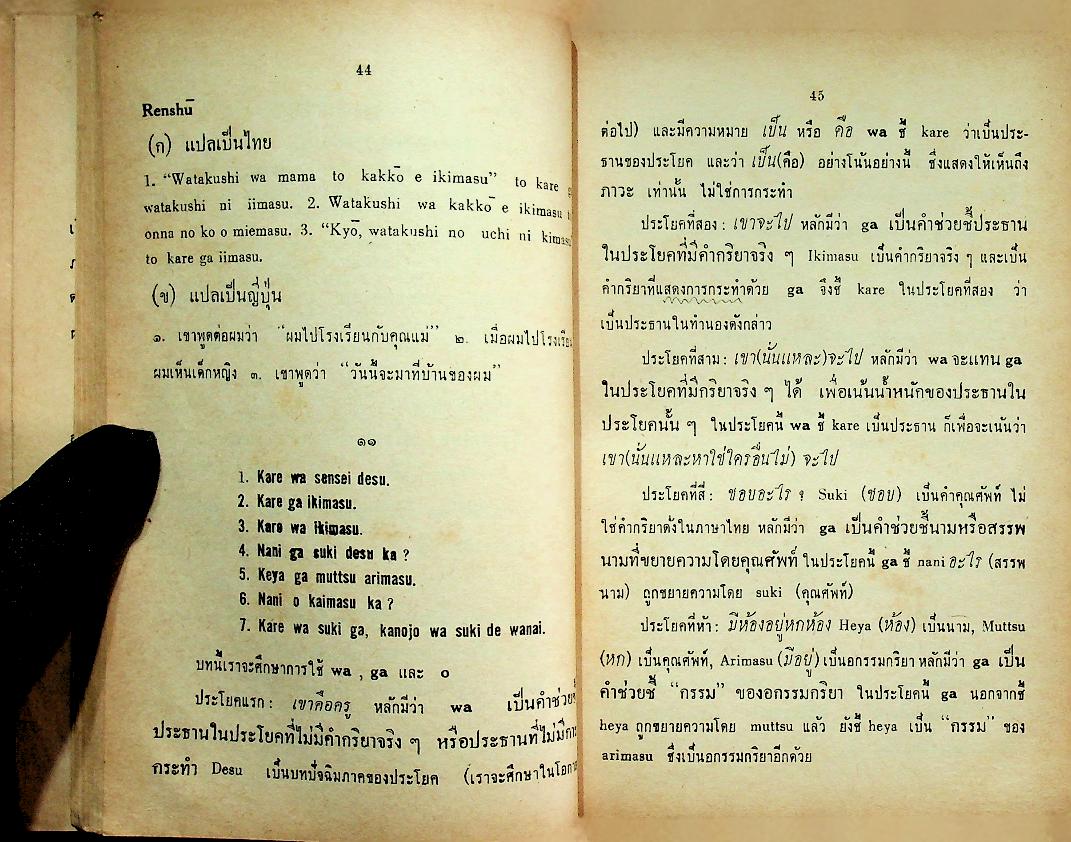 44
Renshū
(ก) แปลเป็นไทย
1. “Watakushi wa mama to kakkō e ikimasu” to kare
watakushi ni iimasu. 2. Watakushi wa kakkō e ikimasu
onna no ko o miemasu. 3. “Kyō, watakushi no uchi ni kimasu
to kare ga iimasu.
(ข) แปลเป็นญี่ปุ่น
๑. เขาพูดต่อผมว่า “ผมไปโรงเรียนกับคุณแม่” ๒. เมื่อผมไปโรงเรียน
ผมเห็นเด็กหญิง ๓. เขาพูดว่า “วันนี้จะมาที่บ้านของผม”
๑๑
1. Kare wa sensei desu.
2. Kare ga ikimasu.
3. Kare wa ikimasu.
4. Nani ga suki desu ka ?
5. Keya ga muttsu arimasu.
6. Nani o kaimasu ka ?
7. Kare wa suki ga, kanojo wa suki de wanai.
บทนี้เราจะศึกษาการใช้ wa , ga และ o
ประโยคแรก : เขาคือครู หลักมีว่า wa เป็นคำช่วย
ประธานในประโยคที่ไม่มีคำกริยาจริง ๆ หรือประธานที่ไม่มีการ
กระทำ Desu เป็นบทปัจฉิมภาคของประโยค (เราจะศึกษาในโอกาส
45
ต่อไป) และมีความหมาย เป็น หรือ คือ wa ชี้ kare ว่าเป็นประ-
ธานของประโยค และว่า เป็น(คือ) อย่างโน้นอย่างนี้ ซึ่งแสดงให้เห็นถึง
ภาวะ เท่านั้น ไม่ใช่การกระทำ
ประโยคที่สอง : เขาจะไป หลักมีว่า ga เป็นคำช่วยชี้ประธาน
ในประโยคที่มีคำกริยาจริง ๆ Ikimasu เป็นคำกริยาจริง ๆ และเป็น
คำกริยาที่แสดงการกระทำด้วย ga จึงชี้ kare ในประโยคที่สอง ว่า
เป็นประธานในทำนองดังกล่าว
ประโยคที่สาม : เขา(นั่นแหละ)จะไป หลักมีว่า wa จะแทน ga
ในประโยคที่มีกริยาจริง ๆ ได้ เพื่อเน้นน้ำหนักของประธานใน
ประโยคนั้น ๆ ในประโยคนี้ wa ชี้ kare เป็นประธาน ก็เพื่อจะเน้นว่า
เขา(นั่นแหละหาใช่ใครอื่นไม่) จะไป
ประโยคที่สี่ : ชอบอะไร ? Suki (ชอบ) เป็นคำคุณศัพท์ ไม่
ใช่คำกริยาดังในภาษาไทย หลักมีว่า ga เป็นคำช่วยชี้นามหรือสรรพ
นามที่ขยายความโดยคุณศัพท์ ในประโยคนี้ ga ชี้ nani อะไร (สรรพ
นาม) ถูกขยายความโดย suki (คุณศัพท์)
ประโยคที่ห้า : มีห้องอยู่หกห้อง Heya (ห้อง) เป็นนาม, Muttsu
(หก) เป็นคุณศัพท์, Arimasu (มีอยู่) เป็นอกรรมกริยา หลักมีว่า ga เป็น
คำช่วยชี้ “กรรม” ของอกรรมกริยา ในประโยคนี้ ga นอกจากชี้
heya ถูกขยายความโดย muttsu แล้ว ยังชี้ heya เป็น “กรรม” ของ
arimasu ซึ่งเป็นอกรรมกริยาอีกด้วย